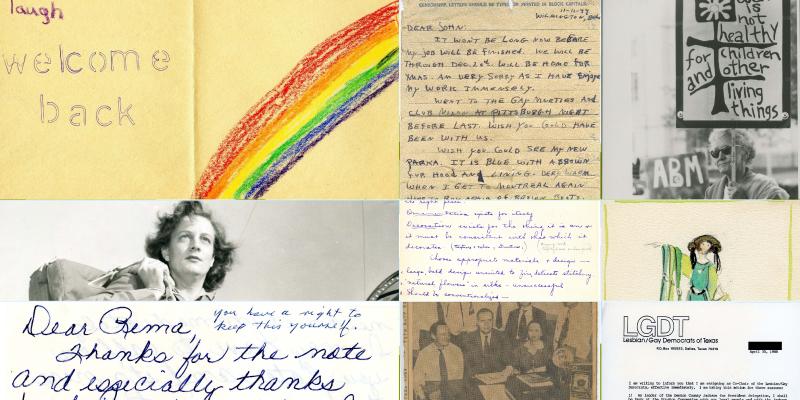 laugh
welcome
back
CENSORSHIP, LETTERS SHOULD BE TYPED OR PRINTED IN BLOCK CAPITALS.
WILMINGTON,
DEAR JOHN:
IT WON'T BE LONG NOW BEFORE
MY JOB WILL BE FINISHED. WE WILL BE
THROUGH DEC. 20th. WILL BE HOME FOR
XMAS. AM VERY SORRY AS I HAVE ENJOYE
MY WORK IMMENSELY.
WENT TO THE GAY NINETIES AND
CLUB NIXON AT PITTSBURGH NIGHT
BEFORE LAST. WISH YOU COULD HAVE
BEEN WITH US.
WISH YOU COULD SEE MY NEW
PARKA. IT IS BLUE WITH A BROWN
FUR HOOD AND LINING. DEEP WARM
WHEN I GET TO MONTREAL AGAIN
is not
healthy
for children
and other
living
things
ABM
exists for itself
Decoration exists for the thing it is on &
it must be consistent with that which it
decorates
Choose appropriate materials & design —
large, bold design unsuited to fine delicate stitching
natural flowers in silks - unsuccessful
Should be conventionalized —
Dear Rema,
you have a right to
keep this yourself.
Thanks for the note
and especially thanks
LGDT
Lesbian/Gay Democrats of Texas
April 30, 1988
I am writing to inform you that I am resigning as Co-Chair of the Lesbian/Gay
Democrats, effective immediately. I am taking this action for three reasons: